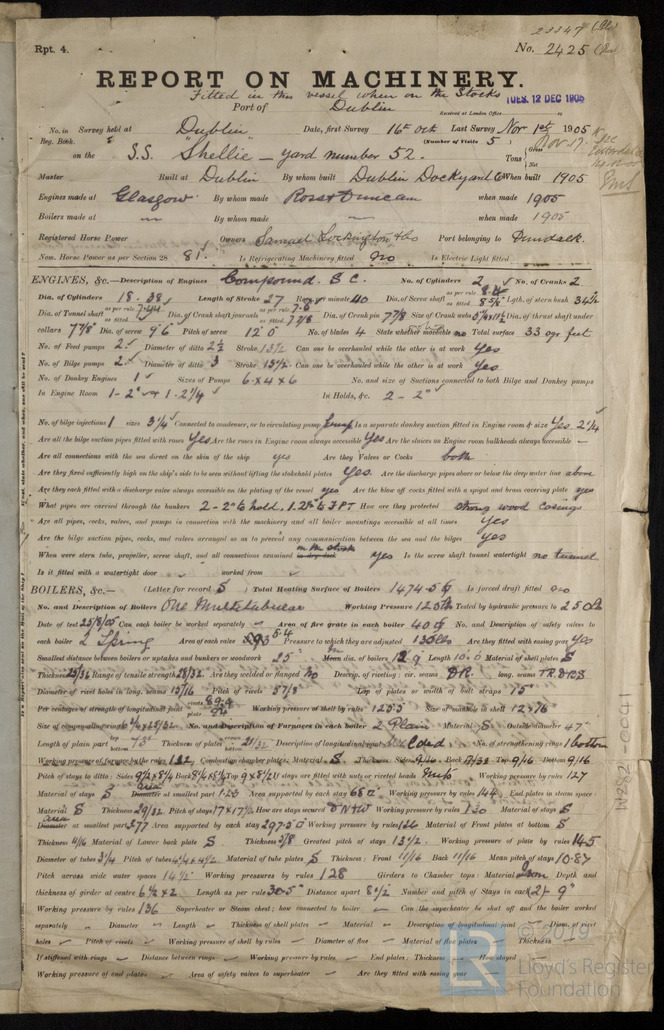 23347 (Gls)
Rpt. 4.
No. 2425
REPORT ON MACHINERY.
Fitted in this vessel when on the Stocks
Port of Dublin
Received at London Office TUES. 12 DEC 1905
No. in Survey held at Dublin Date, first Survey 16th Oct Last Survey Nov 1st 1905
Reg. Book. (Number of Visits 5)
on the S.S. "Shellie" - yard number 52. Tons Gross Net
Master Built at Dublin By whom built Dublin Dockyard Co When built 1905
Engines made at Glasgow By whom made Ross & Duncan when made 1905
Boilers made at — By whom made — when made 1905
Registered Horse Power Owners Samuel Lockington & Co Port belonging to Dundalk
Nom. Horse Power as per Section 28 81. Is Refrigerating Machinery fitted no Is Electric Light fitted
ENGINES, &c.—Description of Engines Compound. S C. No. of Cylinders 2 No. of Cranks 2
Dia. of Cylinders 18. 38 Length of Stroke 27 Revs. per minute 40 Dia. of Screw shaft as per rule as fitted 8 5/8" Lgth. of stern bush 34 1/2
Dia. of Tunnel shaft as per rule 7.44 as fitted Dia. of Crank shaft journals as per rule as fitted 7 7/8 Dia. of Crank pin 7 7/8 Size of Crank webs Dia. of thrust shaft under
collars 7 7/8" Dia. of screw 9' 6 Pitch of screw 12' 0" No. of blades 4 State whether moveable no Total surface 33 sqr feet
No. of Feed pumps 2 Diameter of ditto 2 1/2 Stroke 13 1/2 Can one be overhauled while the other is at work yes
No. of Bilge pumps 2 Diameter of ditto 3 Stroke 13 1/2 Can one be overhauled while the other is at work yes
No. of Donkey Engines 1 Sizes of Pumps 6 x 4 x 6 No. and size of Suctions connected to both Bilge and Donkey pumps
In Engine Room 1 - 2" 1 - 2 1/4" In Holds, &c. 2 - 2"
No. of bilge injections 1 sizes 3 1/4 Connected to condenser, or to circulating pump pump Is a separate donkey suction fitted in Engine room & size yes 2 1/4
Are all the bilge suction pipes fitted with roses yes Are the roses in Engine room always accessible yes Are the sluices on Engine room bulkheads always accessible —
Are all connections with the sea direct on the skin of the ship yes Are they Valves or Cocks both
Are they fixed sufficiently high on the ship's side to be seen without lifting the stokehold plates yes. Are the discharge pipes above or below the deep water line above
Are they each fitted with a discharge valve always accessible on the plating of the vessel yes Are the blow off cocks fitted with a spigot and brass covering plate yes
What pipes are carried through the bunkers 2 - 2" to hold, 1. 2" to F PT How are they protected strong wood casings
Are all pipes, cocks, valves, and pumps in connection with the machinery and all boiler mountings accessible at all times yes
Are the bilge suction pipes, cocks, and valves arranged so as to prevent any communication between the sea and the bilges yes
When were stern tube, propeller, screw shaft, and all connections examined in dry dock on the stocks yes Is the screw shaft tunnel watertight no tunnel
Is it fitted with a watertight door — worked from —
BOILERS, &c.— (Letter for record S) Total Heating Surface of Boilers 1474.5 Is forced draft fitted no
No. and Description of Boilers One Multitubular Working Pressure 125 lb Tested by hydraulic pressure to 250 lb
Date of test 25/8/05 Can each boiler be worked separately — Area of fire grate in each boiler 40 No. and Description of safety valves to
each boiler 2 Spring Area of each valve Pressure to which they are adjusted 130 lbs Are they fitted with easing gear yes
Smallest distance between boilers or uptakes and bunkers or woodwork 25" Mean dia. of boilers 12' 9 Length 10' 0 Material of shell plates S
Thickness 25/32 Range of tensile strength 28/32 Are they welded or flanged no Descrip. of riveting: cir. seams DR. long. seams TR DBS
Diameter of rivet holes in long. seams 15/16 Pitch of rivets 5 7/8 Lap of plates or width of butt straps 15"
Per centages of strength of longitudinal joint rivets plate 84 Working pressure of shell by rules 125.5 Size of manhole in shell 12 x 16
Size of compensating ring No. and Description of Furnaces in each boiler 2 Plain Material S Outside diameter 47"
Length of plain part top bottom 75" Thickness of plates crown bottom 21/32 Description of longitudinal joint Welded No. of strengthening rings 1 bottom
Working pressure of furnace by the rules 132 Combustion chamber plates: Material S Thickness: Sides 9/16 Back Top 9/16 Bottom 9/16
Pitch of stays to ditto: Sides 9 1/2 x 8 1/4 Back Top 9 x 8 1/2 If stays are fitted with nuts or riveted heads nuts Working pressure by rules 127
Material of stays S Area at smallest part Area supported by each stay 68 Working pressure by rules 144 End plates in steam space:
Material S Thickness 29/32 Pitch of stays 17 x 17 1/2 How are stays secured DN & W Working pressure by rules 130 Material of stays S
Area at smallest part Area supported by each stay 297.5 Working pressure by rules Material of Front plates at bottom S
Thickness 11/16 Material of Lower back plate S Thickness 5/8 Greatest pitch of stays 13 1/2 Working pressure of plate by rules 145
Diameter of tubes 3 1/4 Pitch of tubes 4 1/2 x 4 1/2 Material of tube plates S Thickness: Front 11/16 Back 11/16 Mean pitch of stays 10.87
Pitch across wide water spaces 14 1/2" Working pressures by rules 128 Girders to Chamber tops: Material Iron Depth and
thickness of girder at centre 6 1/2 x 2 Length as per rule 30.5" Distance apart 8 1/2 Number and pitch of Stays in each (2) 9"
Working pressure by rules 136 Superheater or Steam chest; how connected to boiler — Can the superheater be shut off and the boiler worked
separately — Diameter — Length — Thickness of shell plates — Material — Description of longitudinal joint — Diam. of rivet
holes — Pitch of rivets — Working pressure of shell by rules — Diameter of flue — Material of flue plates — Thickness —
If stiffened with rings — Distance between rings — Working pressure by rules — End plates: Thickness — How stayed —
Working pressure of end plates — Area of safety valves to superheater — Are they fitted with easing gear —
W282-0041
© 2019
LR
Lloyd's Register
Foundation